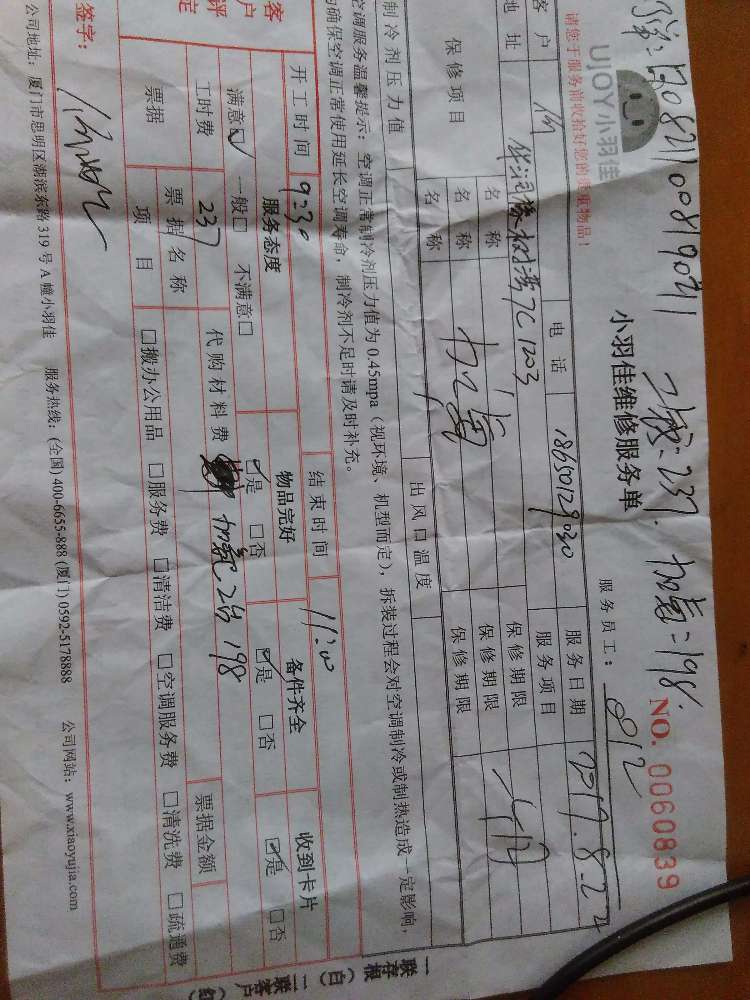 170821100819021 工费:237. 加氟=198.
UJOY小羽佳
请您于服务前收拾好您的贵重物品!
小羽佳维修服务单
NO. 0060839
服务员工: 812
客户 电话 18650129030 服务日期 2017.8.22
地址 华润橡树湾7C1203 服务项目
保修项目 名称 保修期限
名称 加氟 保修期限
名称 保修期限
制冷剂压力值 出风口温度
空调服务温馨提示:空调正常制冷剂压力值为 0.45mpa(视环境、机型而定),拆装过程会对空调制冷或制热造成一定影响,
为确保空调正常使用延长空调寿命,制冷剂不足时请及时补充。
开工时间 9:30 结束时间 11:30
客户评定 服务态度 物品完好 备件齐全 收到卡片
满意☑ 一般□ 不满意□ ☑是 □否 ☑是 □否 ☑是 □否
工时费 237 代购材料费 加氟 198
票据 票据名称 票据金额
项目 □搬办公用品 □服务费 □清洁费 □空调服务费 □清洗费 □疏通费
签字:
公司地址:厦门市思明区湖滨东路 319 号 A 幢小羽佳 服务热线:(全国) 400-6655-888 (厦门) 0592-5178888 公司网站:www.xiaoyujia.com
一联存根(白) 二联客户(红)